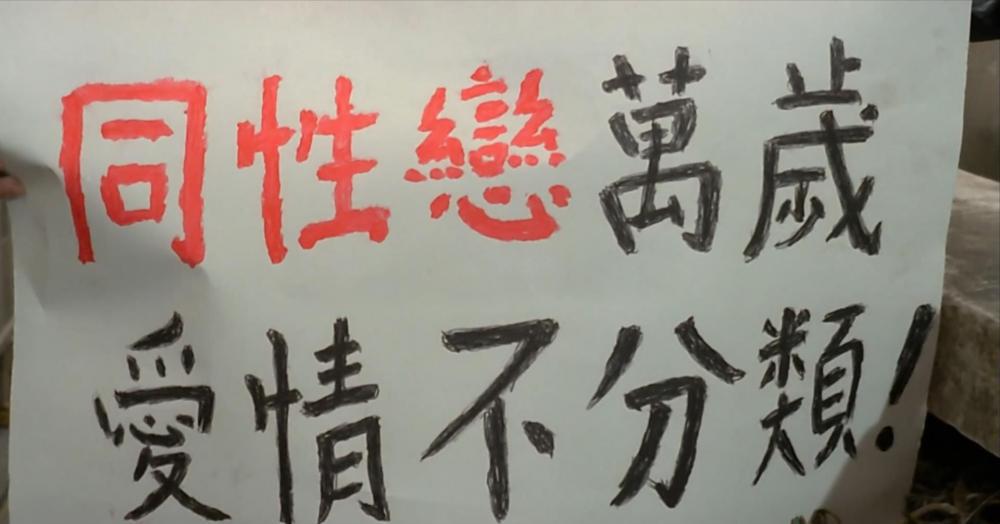 同性戀萬歲
愛情不分類!